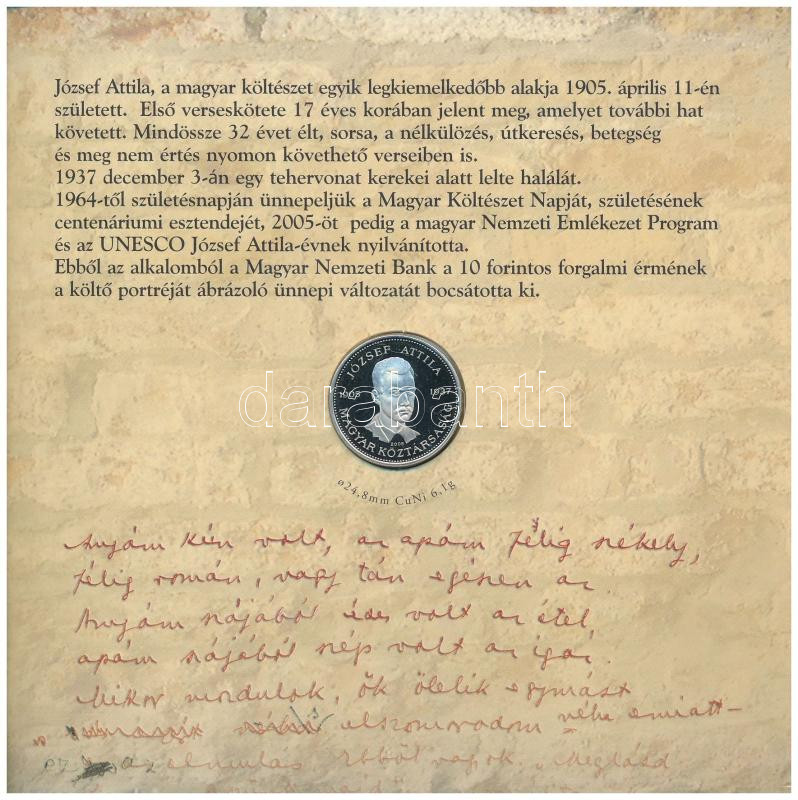 József Attila, a magyar költészet egyik legkiemelkedőbb alakja 1905. április 11-én
született. Első verseskötete 17 éves korában jelent meg, amelyet további hat
követett. Mindössze 32 évet élt, sorsa, a nélkülözés, útkeresés, betegség
és meg nem értés nyomon követhető verseiben is.
1937 december 3-án egy tehervonat kerekei alatt lelte halálát.
1964-től születésnapján ünnepeljük a Magyar Költészet Napját, születésének
centenáriumi esztendejét, 2005-öt pedig a magyar Nemzeti Emlékezet Program
és az UNESCO József Attila-évnek nyilvánította.
Ebből az alkalomból a Magyar Nemzeti Bank a 10 forintos forgalmi érmének
a költő portréját ábrázoló ünnepi változatát bocsátotta ki.
JÓZSEF ATTILA
1905 1937
MAGYAR KÖZTÁRSASÁG
2005
darabanth
ø24,8mm CuNi 6,1g
Anyám kún volt, az apám félig székely,
félig román, vagy tán egészen az.
Anyám szájából édes volt az étel
apám szájából szép volt az igaz.
Mikor mozdulok, ők ölelik egymást
elszomorodom néha emiatt –
az elmulás. Ebből vagyok. „Meglásd